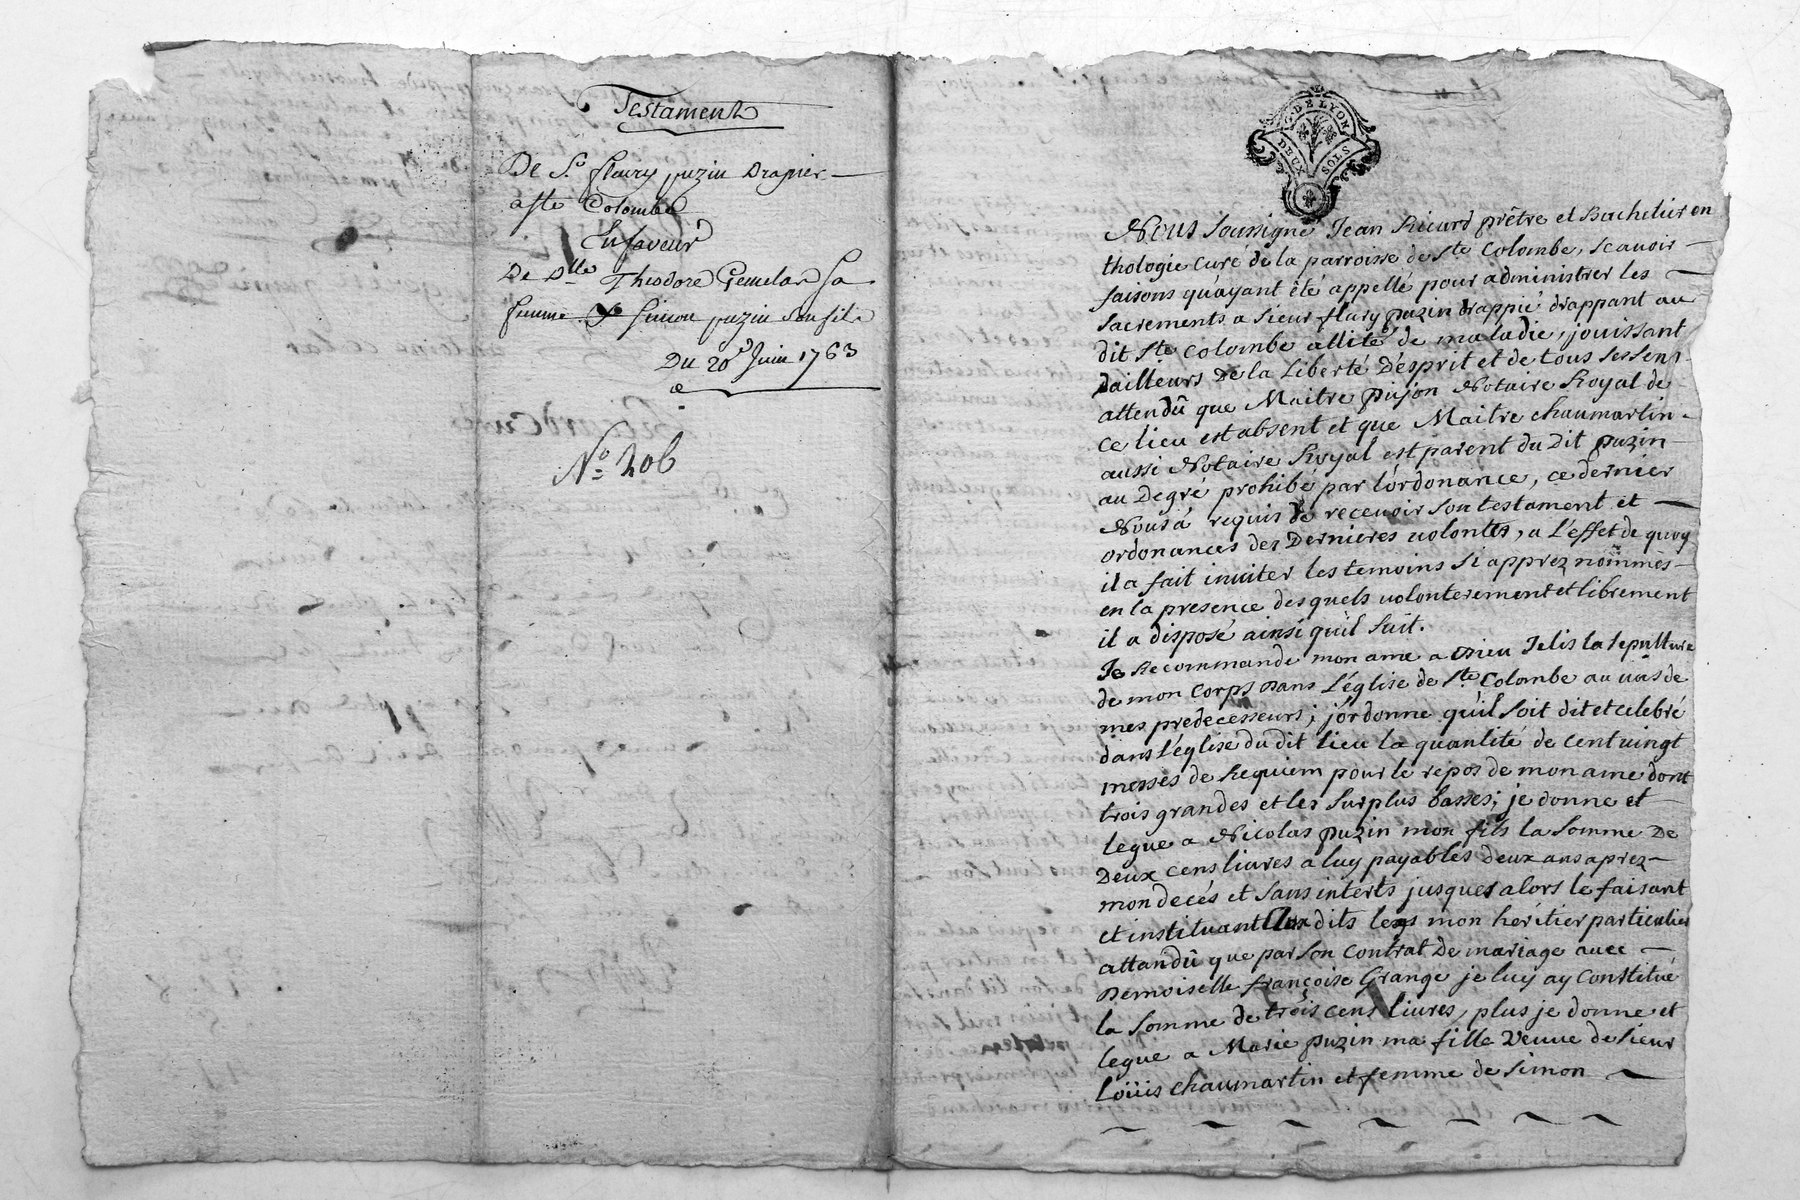 Testament
De Sr. fleury puzin Drapier
a Ste Colombe
En faveur
De Dlle Theodore Gemelas Sa
femme & Simon puzin Son fils
Du 20e Juin 1763
No. 206
G. DE LYON
DEUX SOLS
Nous Soussigné Jean Ricard prêtre et Bachelier en
thologie curé de la parroisse de Ste Colombe, Scavoir
faisons quayant été appellé pour administrer les
Sacrements a Sieur flury puzin drappié drappant au
dit Ste Colombe allité de maladie, jouissant
dailleurs De la Liberté D'ésprit et de tous ses sens
attendû que Maitre pujon Notaire Royal de
ce lieu est absent et que Maitre chaumartin
aussi Notaire Royal est parent du Dit puzin
au Degré prohibé par l'órdonance, ce dernier
Nous á requis de recevoir Son testament et
ordonances des Dernieres volontés, a L'éffet de quoy
il a fait inviter les temoins Si apprez nommés
en la presence desquels volonterement et librement
il a disposé ainsi quil Suit.
Je Recommande mon ame a Dieu Jelis la sepulture
de mon Corps Dans L'église de Ste Colombe au vas de
mes predecesseurs; j'órdonne qu'il soit dit et celebré
dans l'église du dit Lieu la quantité de cent vingt
messes de Requiem pour le repos de mon ame dont
trois grandes et les Surplus basses; je donne et
legue a Nicolas puzin mon fils la Somme De
Deux cens livres a luy payables deux ans aprez
mon decés et Sans interts jusques alors le faisant
et instituant Aux dits legs mon héritier particulier
attandû que par Son Contrat De mariage avec
Demoiselle françoise Grange je luy ay Constitué
la Somme de trois cens livres, plus je donne et
legue a Marie puzin ma fille Veuve de Sieur
Loüis chaumartin et femme de Simon